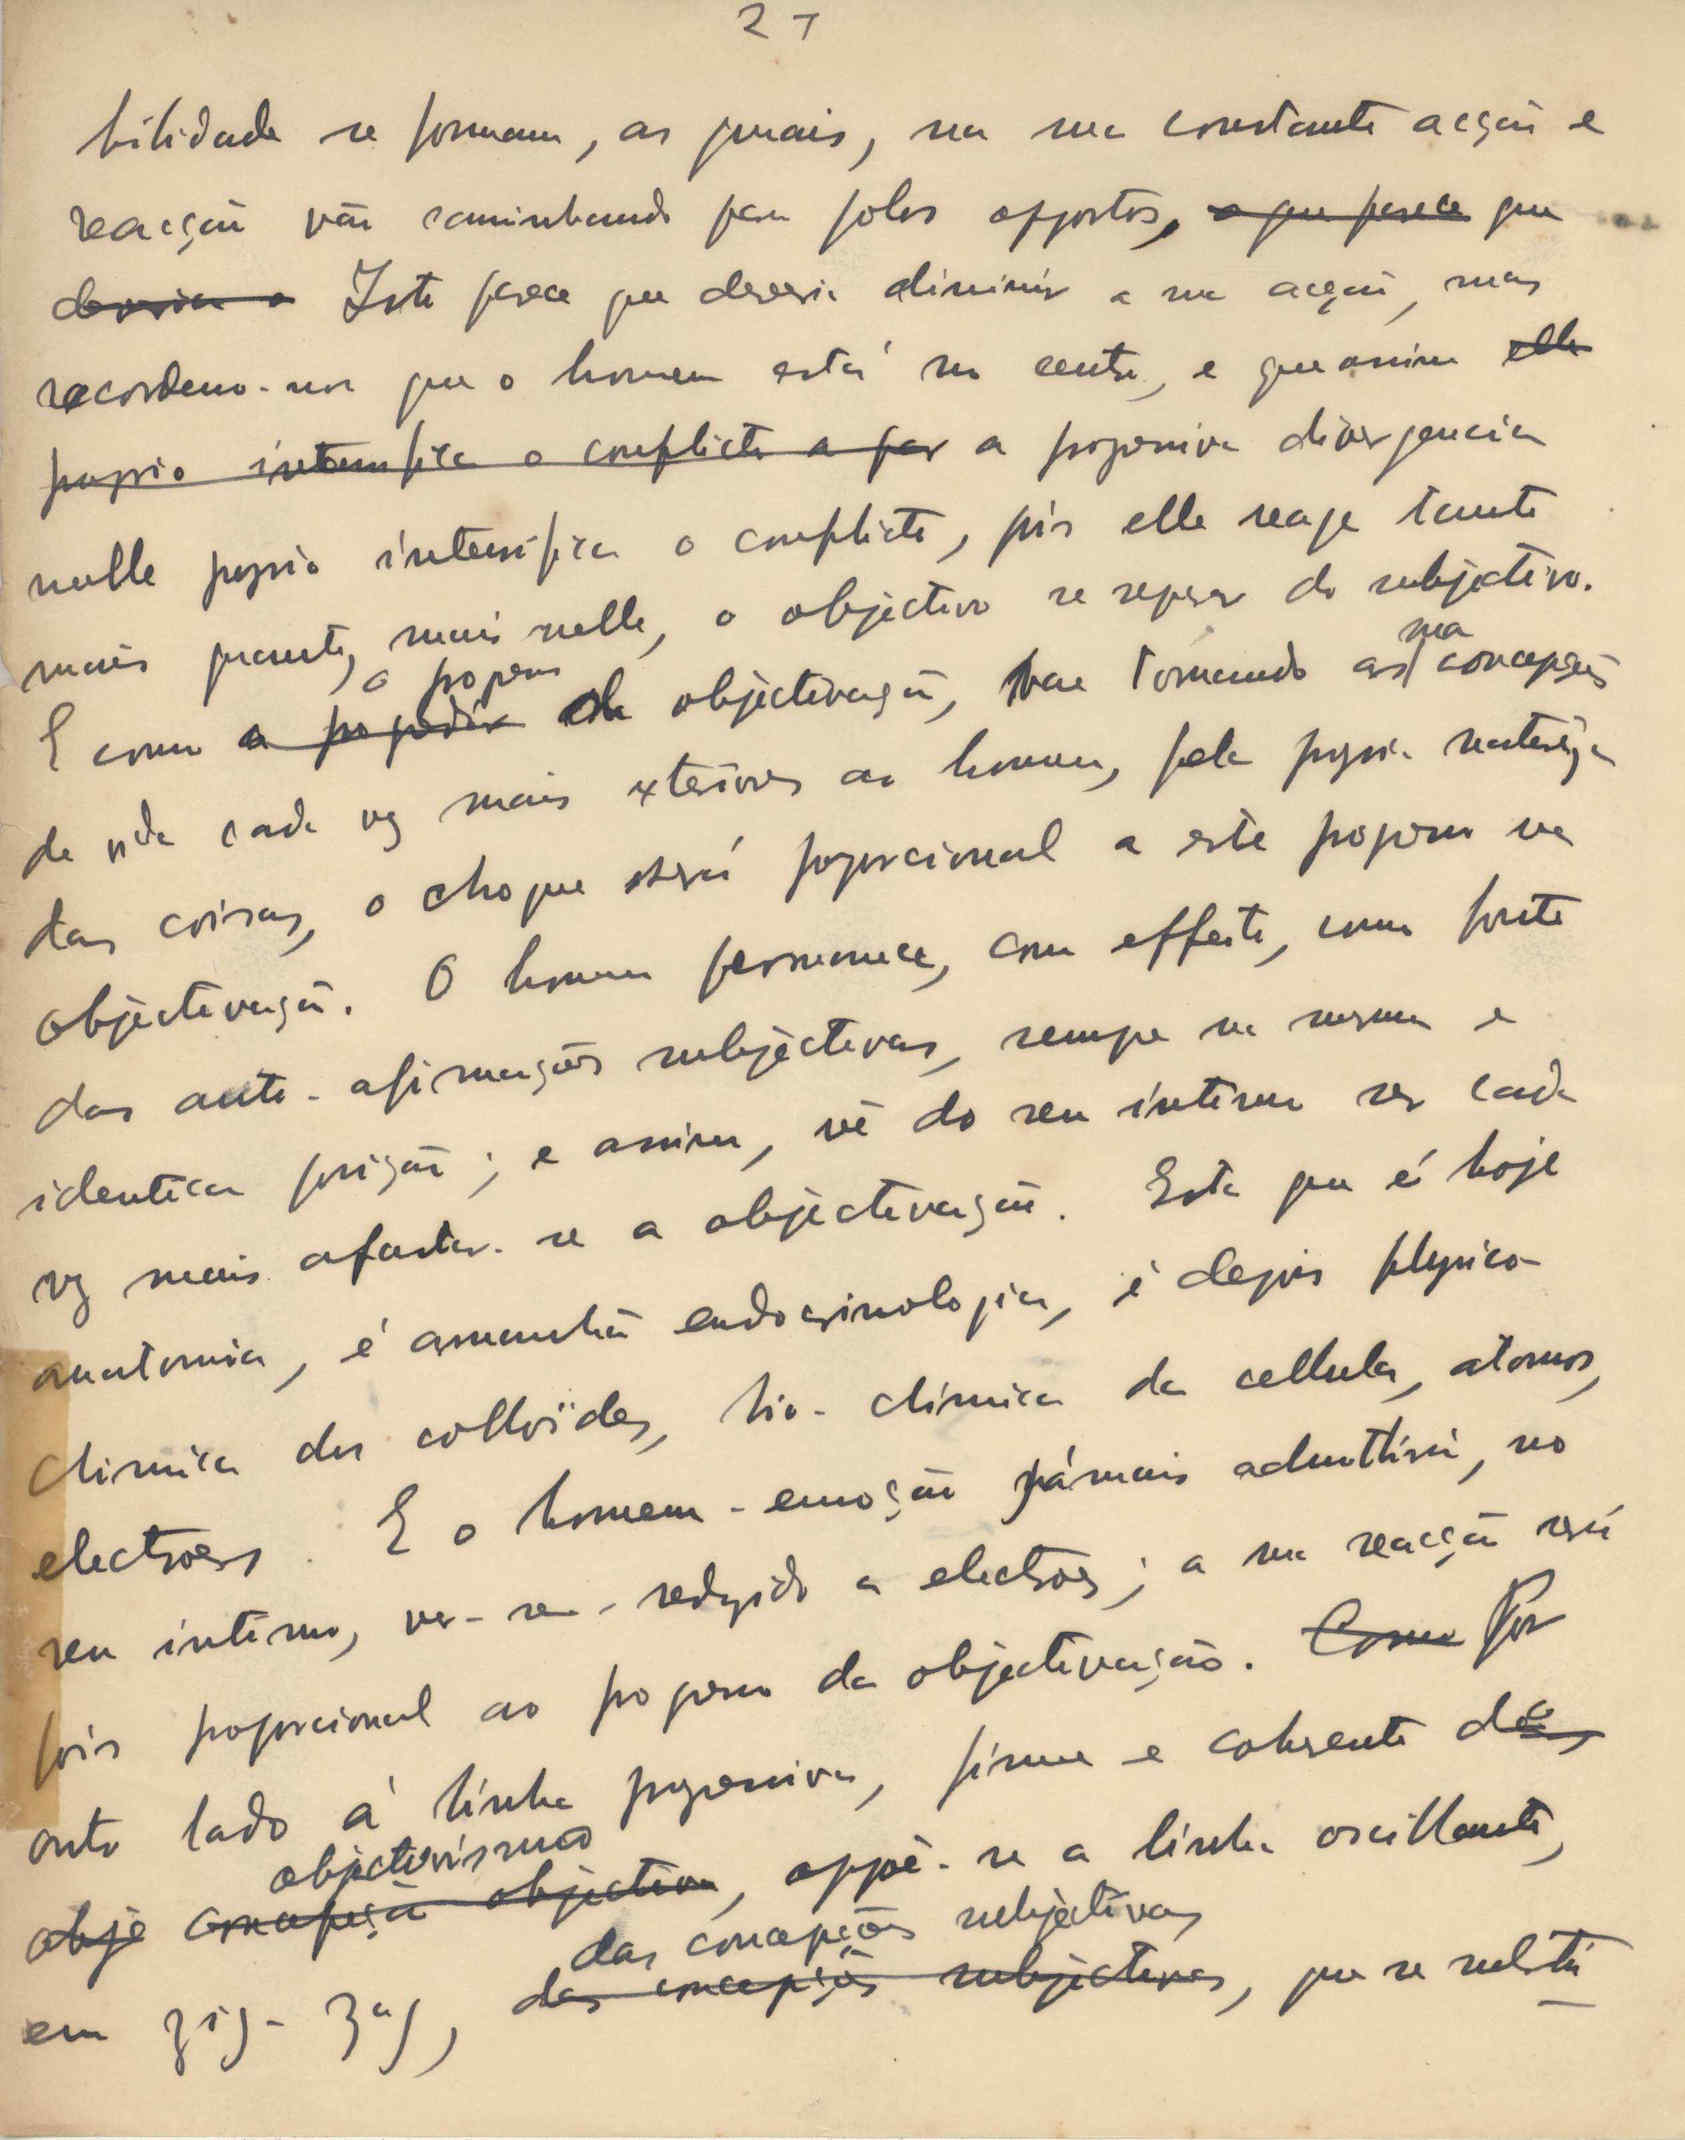 27
bilidade se formam, as quais, na sua constante acção e
reacção vão caminhando para polos oppostos, o que parece que
deveria a Isto parece que deveria diminuir a sua acção, mas
recordemo-nos que o homem está no centro, e que assim elle
proprio intensifica o conflicto a par a progressiva divergencia
nelle proprio intensifica o conflicto, pois elle reage tanto
mais quanto, mais nelle, o objectivo se separar do subjectivo.
E como a o progresso da objectivação, vae tornando as sua concepções
da vida cada vez mais exteriores ao homem, pela propria natureza
das coisas, o choque será proporcional a este progresso na
objectivação. O homem permanece, com effeito, como fonte
das auto-afirmações subjectivas, sempre na mesma e
identica posição; e assim, vê do seu intimo ser cada
vez mais afastar-se a objectivação. Esta que é hoje
anatomia, é amanhã endocrinologia, é depois physico-
chimica dos colloïdes, bio-chimica da cellula, atomos,
electroes. E o homem-emoção jámais admittirá, no
seu intimo, ver-se-redusido a electroes; a sua reacção será
pois proporcional ao progresso da objectivação. Como Por
outro lado á linha progressiva, firme e coherente do
obje concepção objectiva objectivismo, oppõe-se a linha oscillante,
em zig-zag, das concepções subjectivas das concepções subjectivas, que se